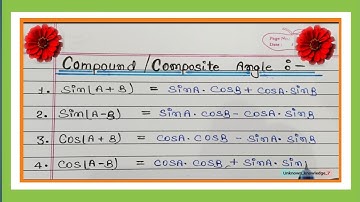 Page No.
Date
Compound / Composite Angle :-
1. Sin(A+B) = SinA. CosB + CosA. SinB
2. Sin(A-B) = SinA. CosB - CosA. SinB
3. Cos(A+B) = CosA. CosB - SinA. SinB
4. Cos(A-B) = CosA. CosB + SinA. Sin
Unknown_knowledge_7